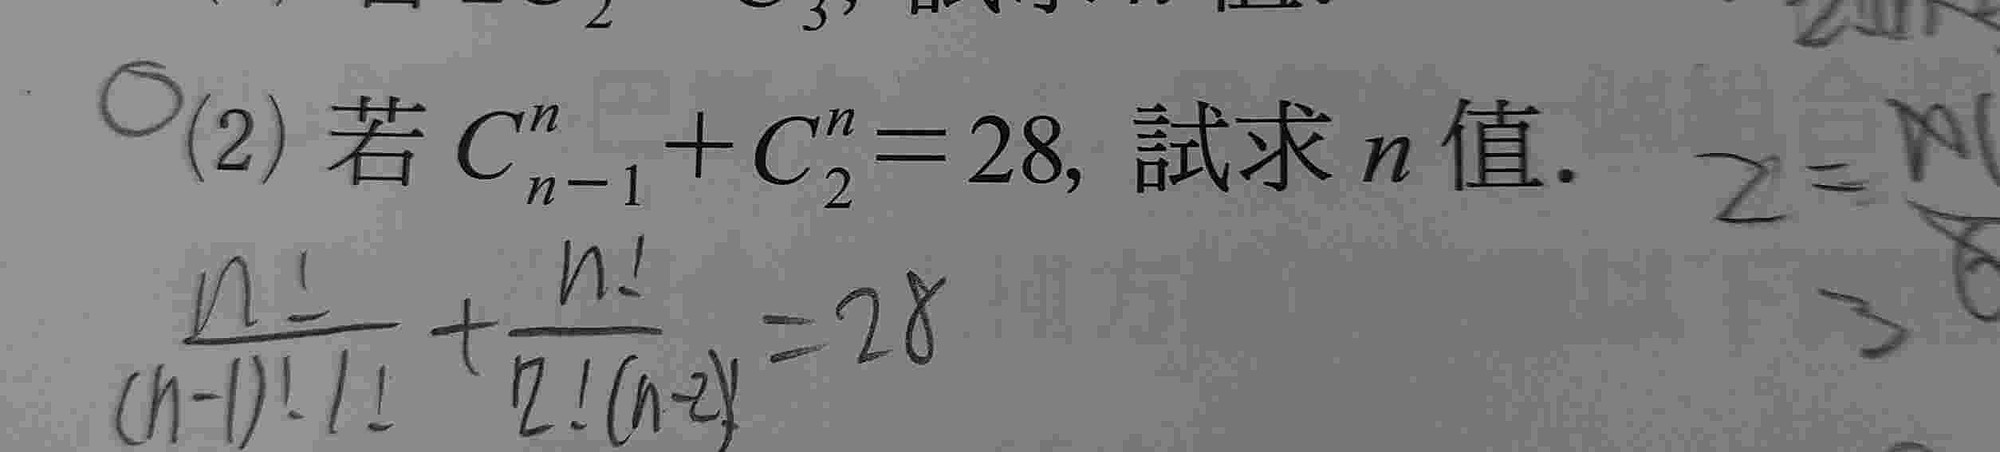 (2) 若 C^n_{n-1} + C^n_2 = 28, 試求 n 值.
n! / (n-1)! 1! + n! / 2! (n-2)! = 28
2 =
3